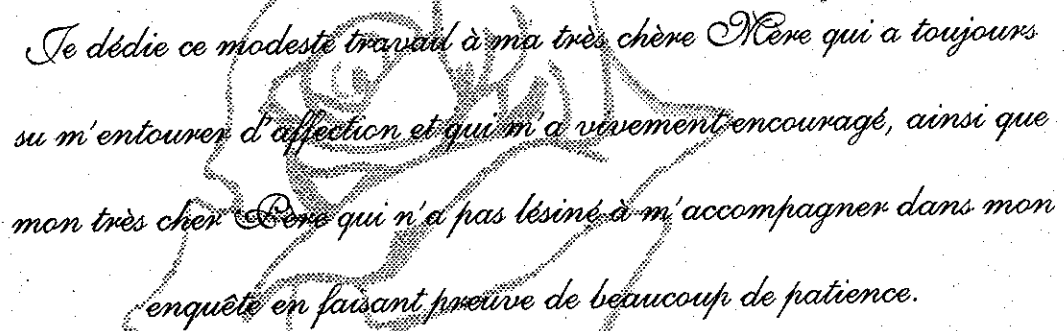 Je dédie ce modeste travail à ma très chère Mère qui a toujours
su m'entourer d'affection et qui m'a vivement encouragé, ainsi que
mon très cher Père qui n'a pas lésiné à m'accompagner dans mon
enquête en faisant preuve de beaucoup de patience.